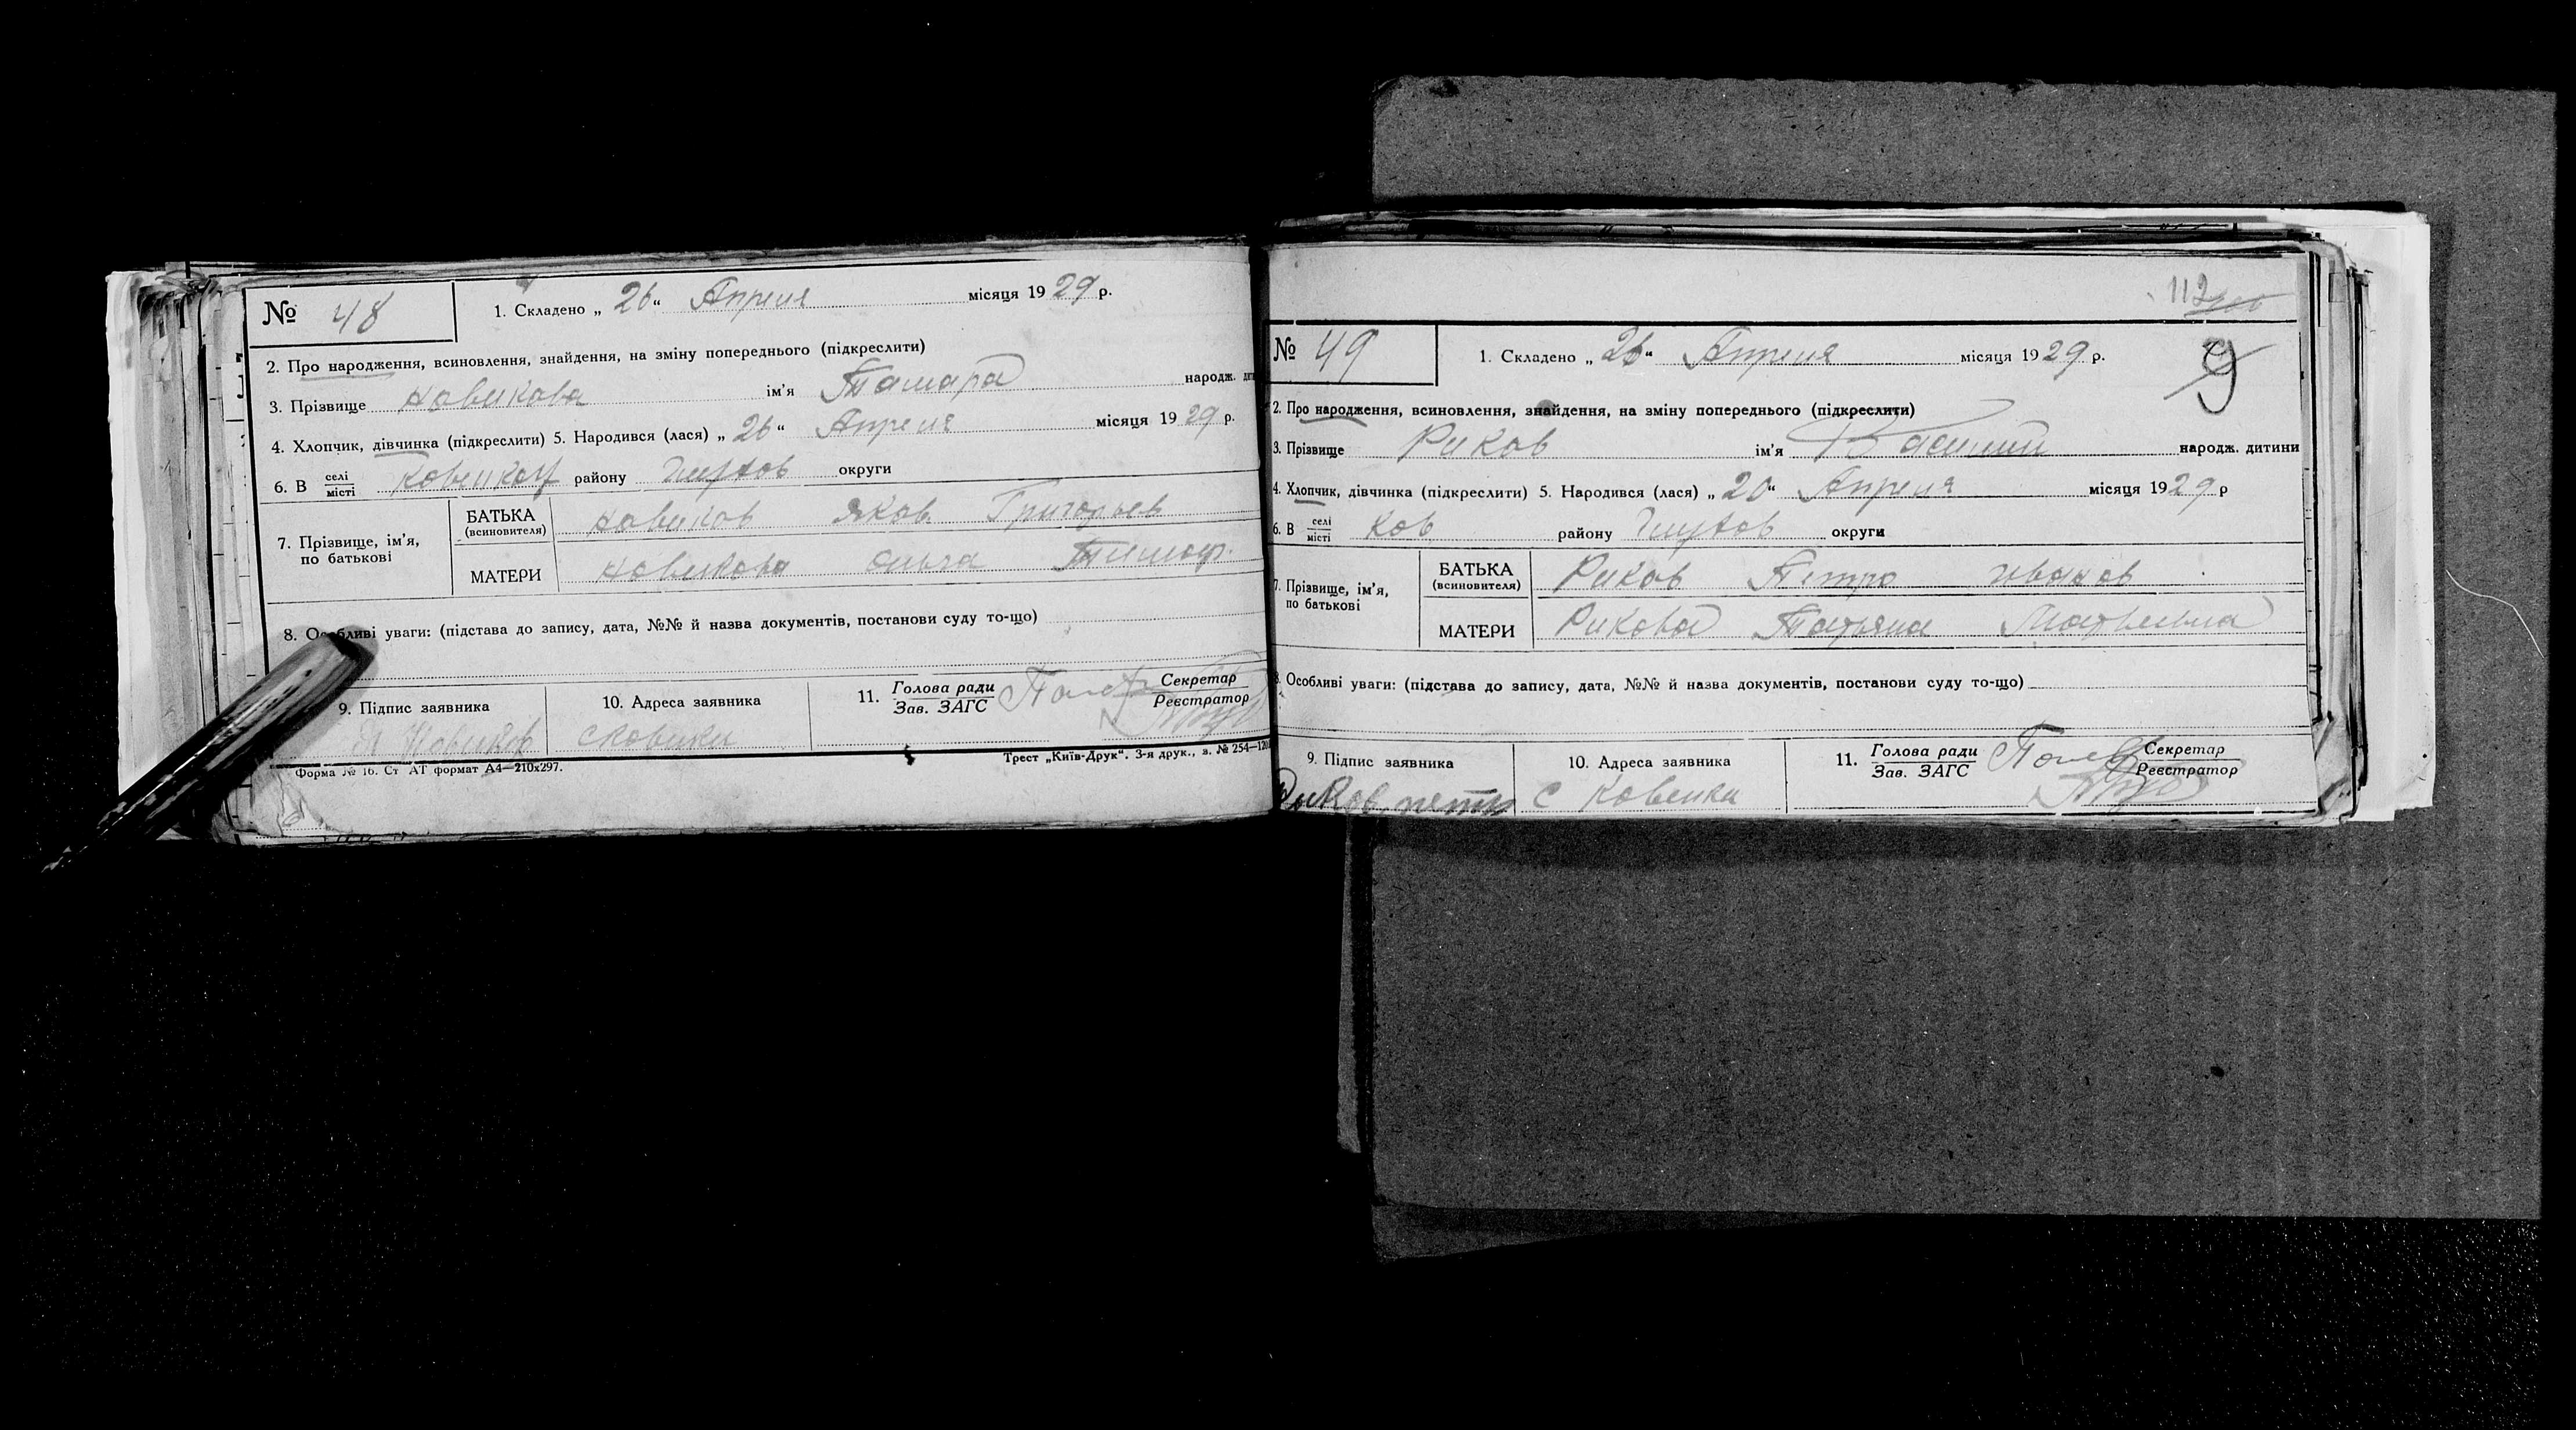 № 48
1. Складено „ 26 “ Апреля місяця 1929 р.
2. Про народження, всиновлення, знайдення, на зміну попереднього (підкреслити)
3. Прізвище Новикова ім'я Тамара народж.
4. Хлопчик, дівчинка (підкреслити) 5. Народився (лася) „ 26 “ Апреля місяця 1929 р.
6. В селі місті району Глухов округи
7. Прізвище, ім'я, по батькові
БАТЬКА (всиновителя) Новиков Яков Григорьев
МАТЕРИ Новикова Ольга Тимоф.
8. Особливі уваги: (підстава до запису, дата, №№ й назва документів, постанови суду то-що)
9. Підпис заявника Я Новиков
10. Адреса заявника с Ковенки
11. Голова ради Зав. ЗАГС
Секретар Реєстратор
Форма № 16. Ст АТ формат А4—210х297.
Трест „Київ-Друк“. 3-я друк., з. № 254—120
112
№ 49
1. Складено „ 26 “ Апреля місяця 1929 р.
9
2. Про народження, всиновлення, знайдення, на зміну попереднього (підкреслити)
3. Прізвище Риков ім'я Василий народж. дитини
4. Хлопчик, дівчинка (підкреслити) 5. Народився (лася) „ 20 “ Апреля місяця 1929 р
6. В селі місті Ков. району Глухов округи
7. Прізвище, ім'я, по батькові
БАТЬКА (всиновителя) Риков Петро Иванов
МАТЕРИ Рикова Татьяна Матвеевна
8. Особливі уваги: (підстава до запису, дата, №№ й назва документів, постанови суду то-що)
9. Підпис заявника Риков петр
10. Адреса заявника с Ковенки
11. Голова ради Зав. ЗАГС
Секретар Реєстратор